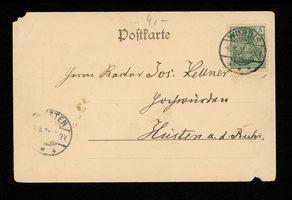 4,-
Postkarte
Herrn Rector Jos. Kellner
Hochwürden
Hüsten a. d. Ruhr.